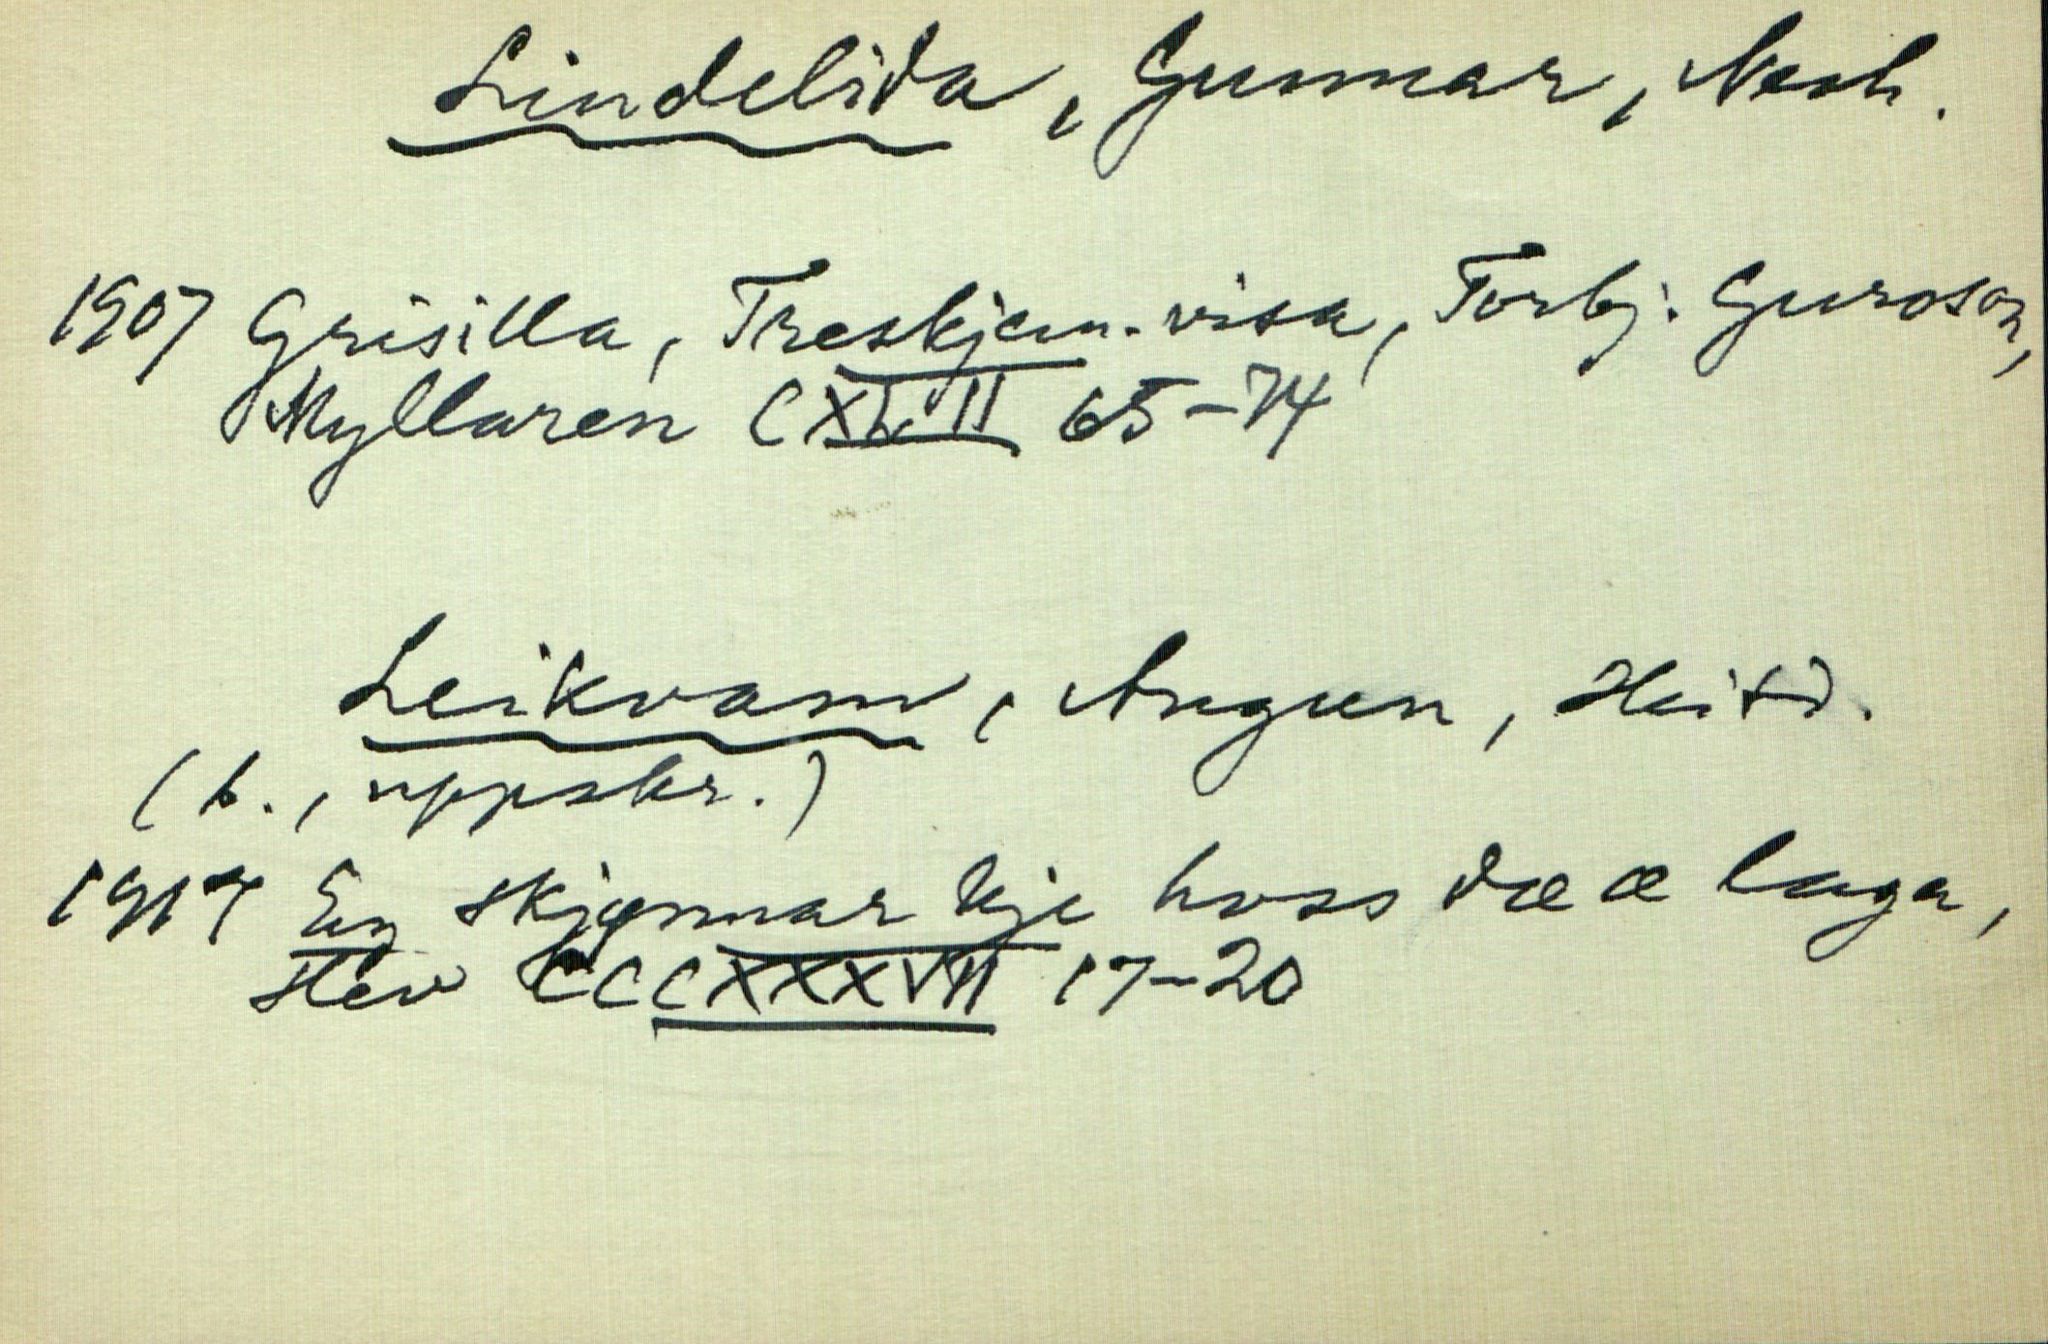 Lindelida, Gunnar, Nesh.
1907 Grisilla, Treskjem-visa, Torbj. Guroson,
Myllaren CXLVII 65-74
Leikvam, Angun, Heitr.
(b., uppskr.)
1917 Eg skjønnar kje hoss dæ æ laga,
stev CCCXXXVII 17-20